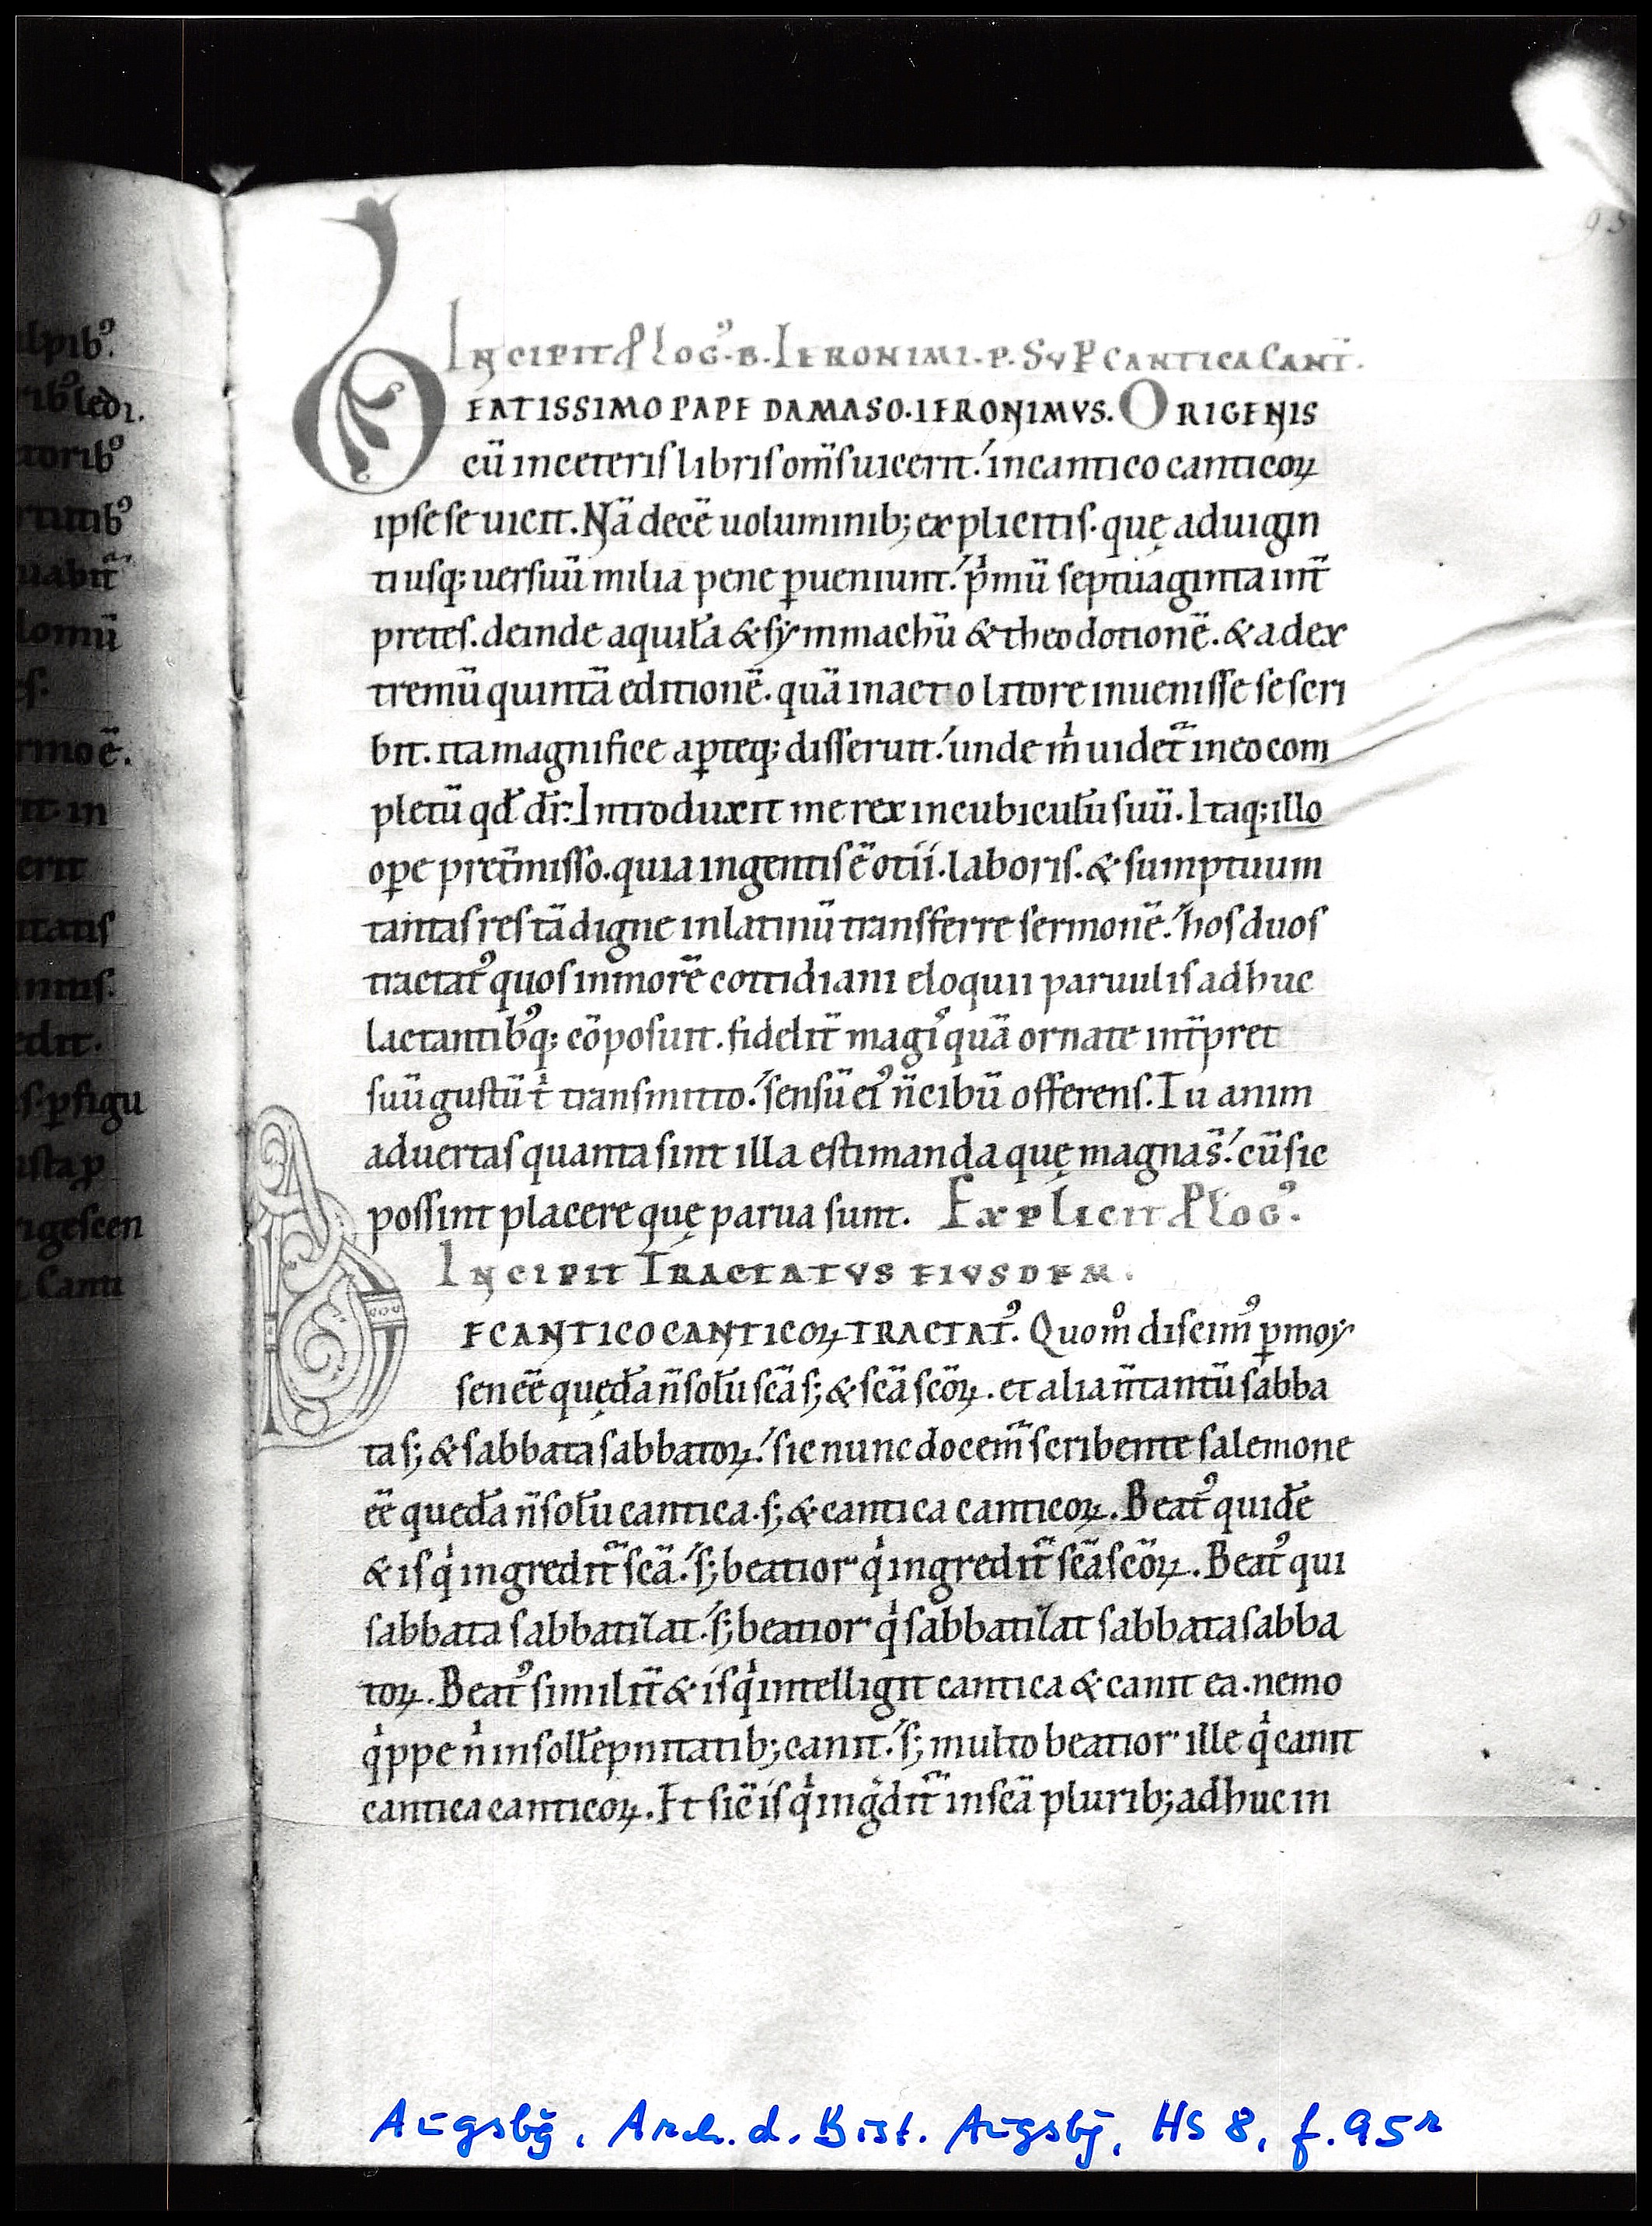 95
ulpibꝰ.
ribꝰ ledi.
toribꝰ
lomū
eſ.
rmo ē.
it in
erit
itatis
edit.
ſ. ꝑfigu
uſtaꝓ
rigeſcen
Canti
Incipit ꝓlogꝰ. B. Ieronimi. P. Suꝑ cantica cant̄.
BEATISSIMO PAPE DAMASO. IERONIMVS. ORIGENIS
cū in ceteriſ libriſ om̄ſ uicerit. in cantico canticoꝝ
ipſe ſe uicit. Nā decē uoluminib; explicitiſ. quę ad uigin
ti uſq; uerſuū milia pene ꝑueniunt. pͥmū ſeptuaginta int̄
preteſ. deinde aquilā & ſẏmmachū & theodotionē. & ad ex
tremū quintā editionē. quā in acto litore inueniſſe ſe ſcri
bit. ita magnifice aꝑteq; diſſeruit. unde mͥ uidet̄ in eo com
pletū qđ dr̄: Introduxit me rex in cubiculū ſuū. Itaq; illo
oꝑe p̄t̄miſſo. quia ingentiſ ē otii. laboris. & ſumptuum
tantaſ reſ tā digne in latinū tranſferre ſermonē. hoſ duoſ
tractatꝰ quoſ in morē cottidiani eloquii paruuliſ adhuc
lactantibꝰq; cōpoſuit. fidelit̄ magiſ quā ornate int̄pret
ſuū guſtū tͥ tranſmitto. ſenſū eiꝰ n̄ cibū offerenſ. Tu anim
aduertaſ quanta ſint illa eſtimanda quę magna ſ̄. cū ſic
poſſint placere quę parua ſunt. Explicit ꝓlogꝰ.
Incipit Tractatvs eivsdem.
DE CANTICO CANTICOꝝ TRACTATꝰ. Quom̊ diſcimꝰ ꝑ moẏ
ſen eē quędā n̄ ſolū ſcā ſ; & ſcā ſcōꝝ. et alia n̄ tantū ſabba
ta ſ; & ſabbata ſabbatoꝝ. ſic nunc docem̄ ſcribente ſalemone
eē quedā n̄ ſolū cantica. ſ; & cantica canticoꝝ. Beatꝰ quidē
& iſ qͥ ingredit̄ ſcā. ſ; beatior qͥ ingredit̄ ſcā ſcōꝝ. Beatꝰ qui
ſabbata ſabbatiſat. ſ; beatior qͥ ſabbatiſat ſabbata ſabba
toꝝ. Beatꝰ ſimilit̄ & iſ qͥ intelligit cantica & canit ea. nemo
qͥppe nͥ in ſollēpnitatib; canit. ſ; multo beatior ille qͥ canit
cantica canticoꝝ. Et ſic̄ iſ qͥ ingͣdit̄ in ſcā plurib; adhuc in
Augsbg, Arch. d. Bist. Augsbg, HS 8, f. 95r